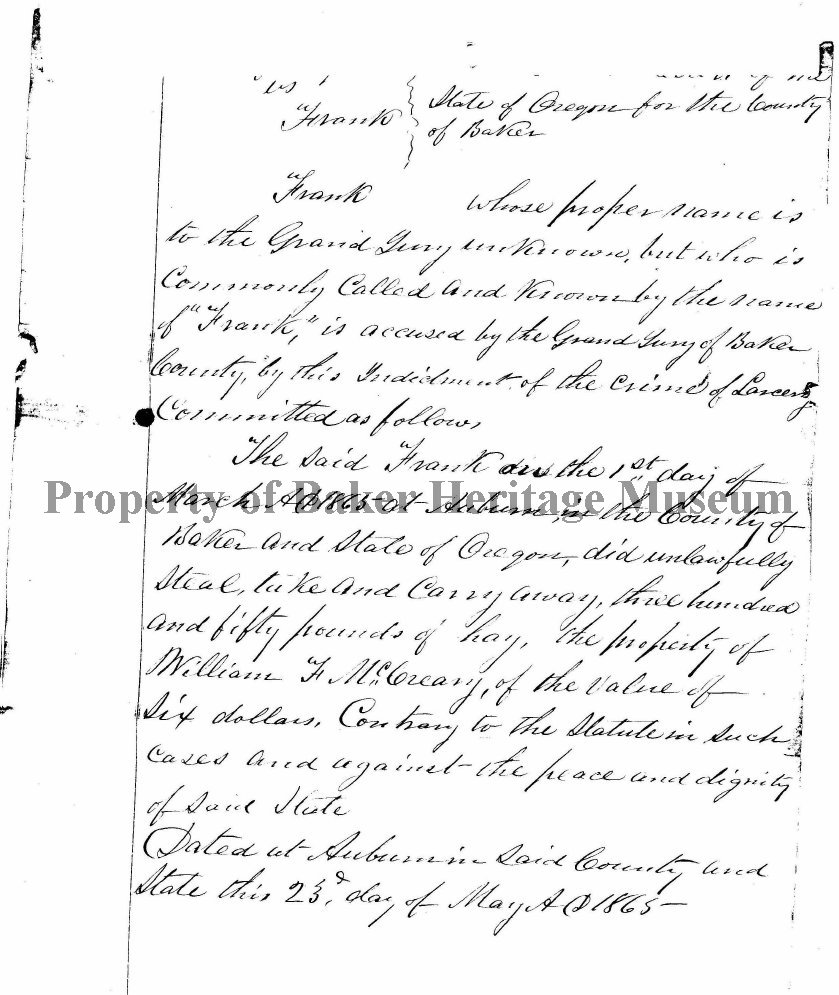 vs
"Frank
State of Oregon for the County
of Baker
"Frank whose proper name is
to the Grand Jury unknown, but who is
Commonly Called and Known by the name
of "Frank," is accused by the Grand Jury of Baker
County, by this Indictment of the crime of Larceny
Committed as follows
The said "Frank on the 1st day of
March AD 1865 at Auburn, in the County of
Baker and State of Oregon, did unlawfully
steal, take and Carry away, three hundred
and fifty pounds of hay, the property of
William F McCreary, of the value of
six dollars, Contrary to the Statute in such
cases and against the peace and dignity
of said State
Dated at Auburn in said County and
State this 23d day of May AD 1865-
Property of Baker Heritage Museum